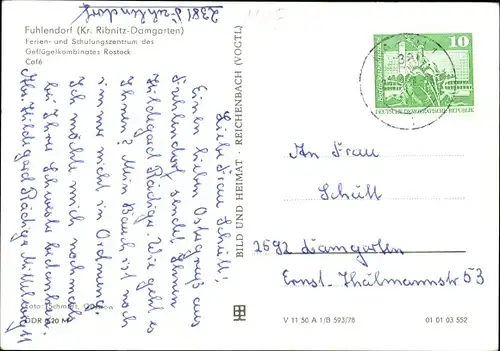 2381 Fuhlendorf
Fuhlendorf (Kr. Ribnitz-Damgarten)
Ferien- und Schulungszentrum des
Geflügelkombinates Rostock
Café
Liebe Frau Schütt!
Einen lieben Ostergruß aus
Fuhlendorf sendet Ihnen
Hildegard Rädiger. Wie geht es
Ihnen? Mein Bauch ist noch
immer nicht in Ordnung.
Ich möchte mich nochmals
bei Ihrer Schwester bedanken.
Hildegard Rädiger
BILD UND HEIMAT · REICHENBACH (VOGTL)
10
DEUTSCHE DEMOKRATISCHE REPUBLIK
An Frau
Schütt
2592 Damgarten
Ernst-Thälmannstr 53
Foto: Schmidt,
DDR 0,20 M
V 11 50 A 1/B 593/78
01 01 03 552